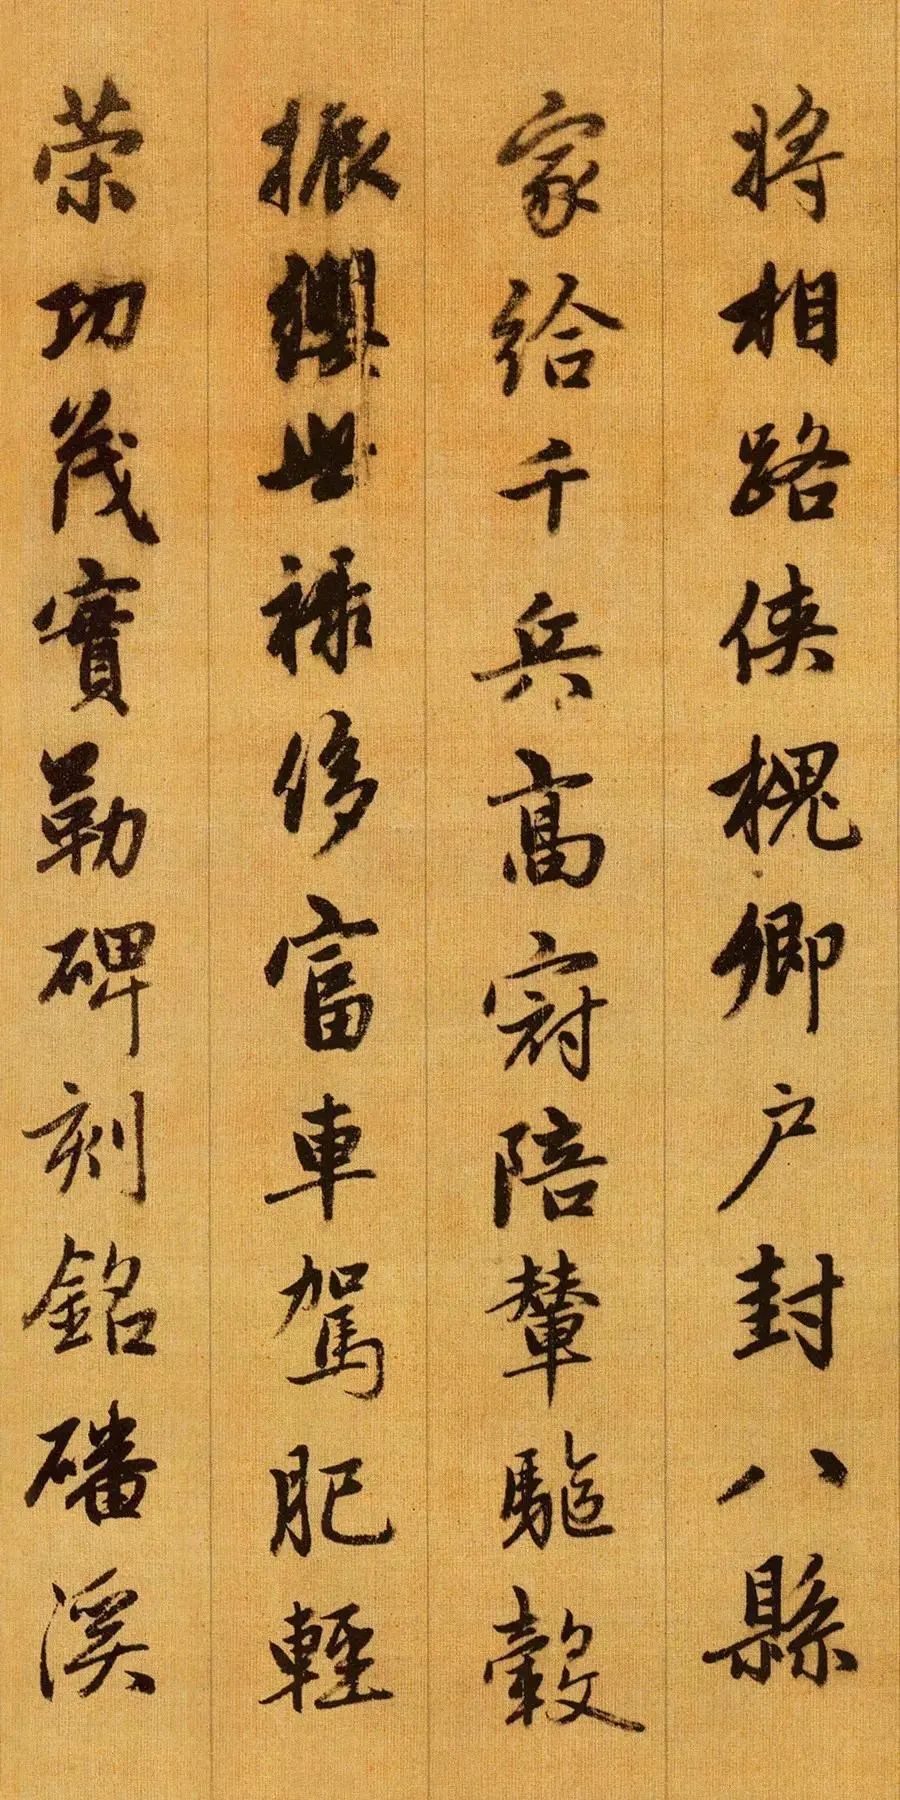 將相路侠槐卿户封八縣
家給千兵高冠陪輦驅轂
振纓世禄侈富車駕肥輕
策功茂實勒碑刻銘磻溪